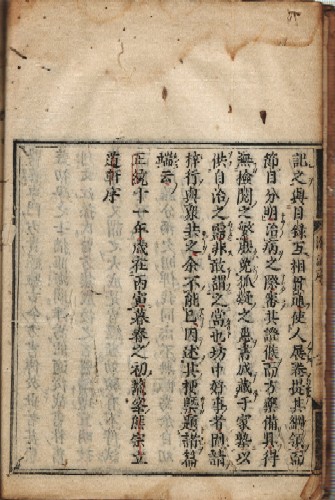 記之與目錄互相符使人展卷提其綱領而
節目分明治病之際審其證候而方藥備具得
無檢閱之繁庶免狐疑之患書成藏于家塾以
供自治之需非敢謂之當也坊中好事者則請
梓行與衆共之余不能已因述其梗槩題諸篇
端云
正統十一年歲在丙寅暮春之初鰲峯熊宗立
道軒序